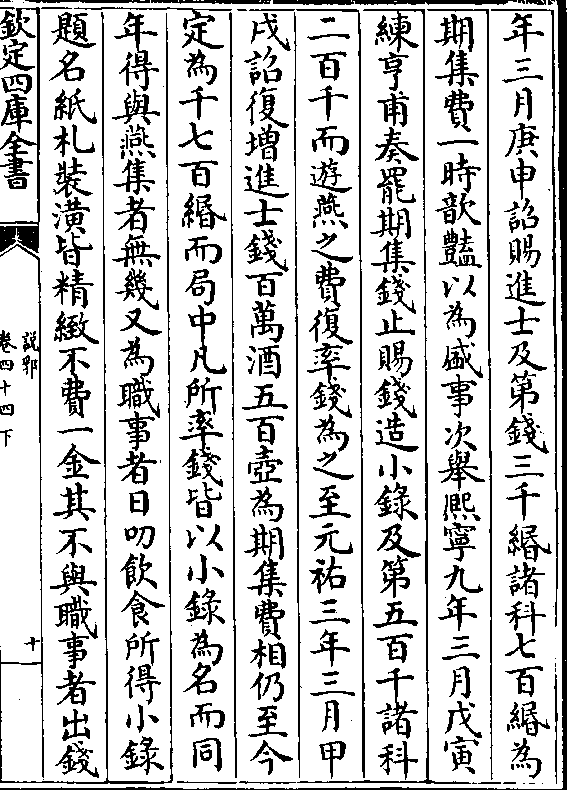 年三月庚申詔賜進士及第錢三千緡諸科七百緡為
期集費一時歆豔以為盛事次舉熙寧九年三月戊寅
練亨甫奏罷期集錢止賜錢造小錄及第五百千諸科
二百千而遊燕之費復率錢為之至元祐三年三月甲
戌詔復增進士錢百萬酒五百壺為期集費相仍至今
定為千七百緡而局中凡所率錢皆以小錄為名而同
年得與燕集者無幾又為職事者日叨飲食所得小錄
題名紙札裝潢皆精緻不費一金其不與職事者出錢
欽定四庫全書
說郛
卷四十四下
十